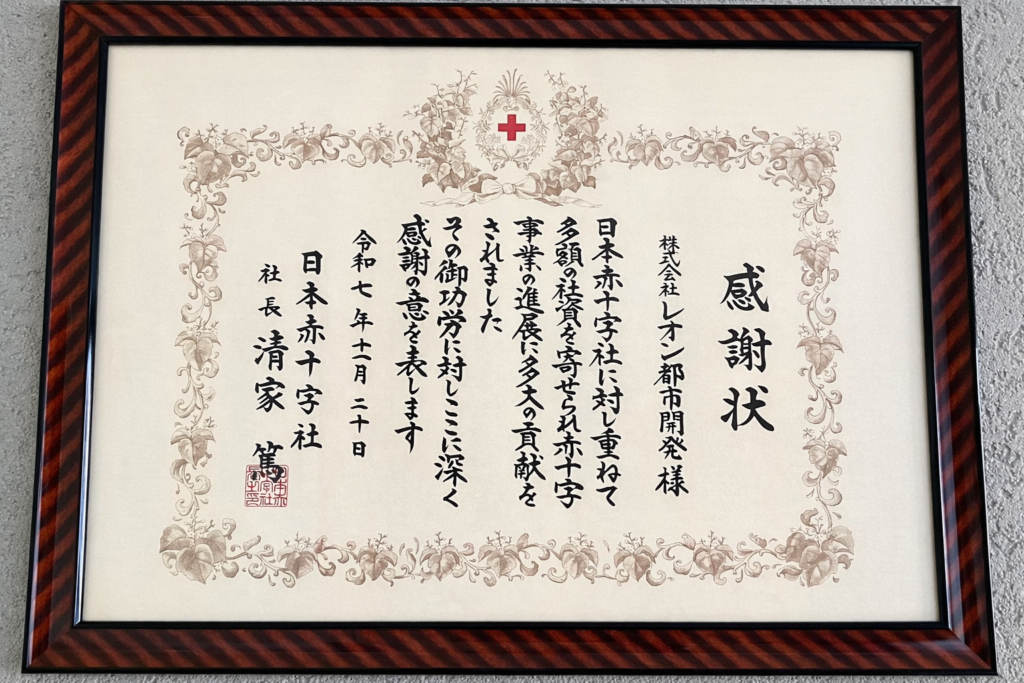 感謝状
株式会社 レオン都市開発 様
日本赤十字社に対し重ねて
多額の社資を寄せられ赤十字
事業の進展に多大の貢献を
されました
その御功労に対しここに深く
感謝の意を表します
令和七年十一月二十日
日本赤十字社
社長 清家 篤